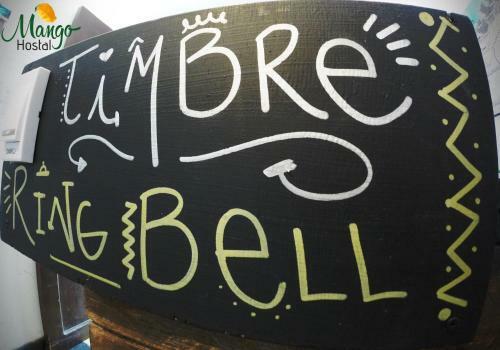 Mango
Hostal
TiMBRe
RiNG BeLL